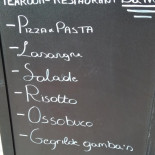 TEAROOM - RESTAURANT
- Pizza & Pasta
- Lasagne
- Salade
- Risotto
- Ossobuco
- Gegrilde gamba's